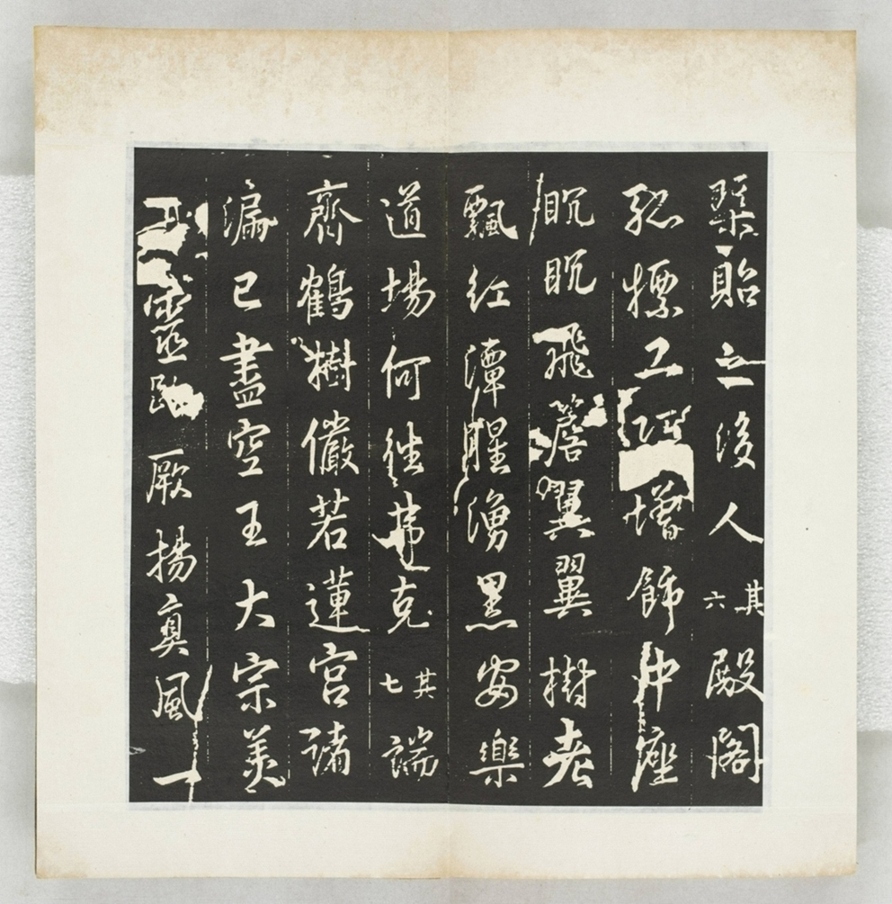 貽之後人其六殿閣
孤標工增飾中座
眈眈飛簷翼翼樹老
飄紅潭腥湧黑安樂
道場何往弗克其七端
齊鶴樹儼若蓮宮諸
漏已盡空王大宗美
靈跡厥揚真風一